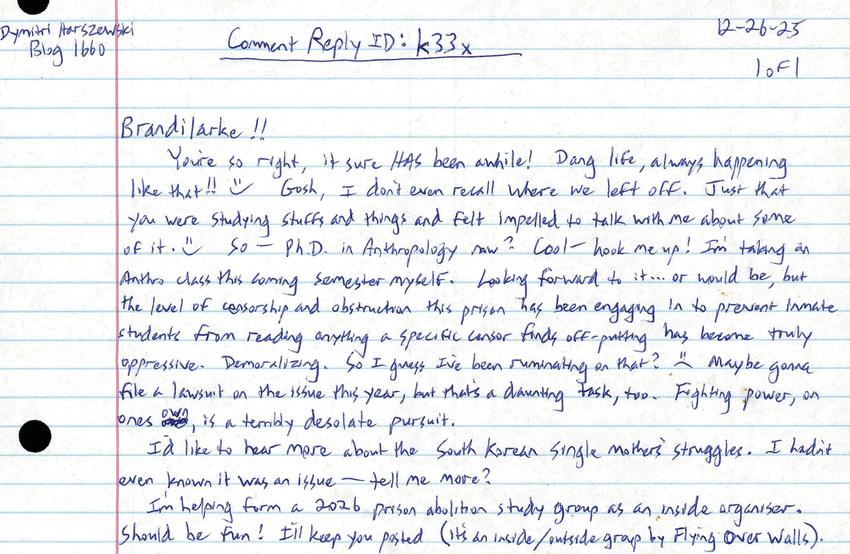 Dymitri Harszewski
Blog 1660
Comment Reply ID: k33x
12-26-25
1 of 1
Brandilarke !!
You're so right, it sure HAS been awhile! Dang life, always happening
like that!! Gosh, I don't even recall where we left off. Just that
you were studying stuffs and things and felt impelled to talk with me about some
of it. So — Ph.D. in Anthropology now? Cool — hook me up! I'm taking an
Anthro class this coming semester myself. Looking forward to it... or would be, but
the level of censorship and obstruction this prison has been engaging in to prevent inmate
students from reading anything a specific censor finds off-putting has become truly
oppressive. Demoralizing. So I guess I've been ruminating on that? Maybe gonna
file a lawsuit on the issue this year, but that's a daunting task, too. Fighting power, on
ones own, is a terribly desolate pursuit.
I'd like to hear more about the South Korean single mothers' struggles. I hadn't
even known it was an issue — tell me more?
I'm helping form a 2026 prison abolition study group as an inside organiser.
Should be fun! I'll keep you posted (it's an inside/outside group by Flying Over Walls).